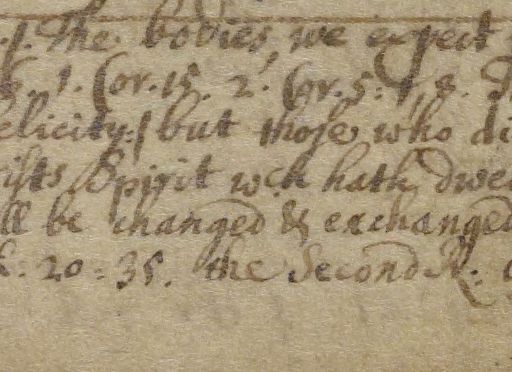 .1. The bodies, we expect
1. Cor. 15. 2. Cor. 5: 1, 8.
elicity: but those who di
ists Spirit wch hath dwe
ll be changed & exchanged
: 20 = 35. the Second R: